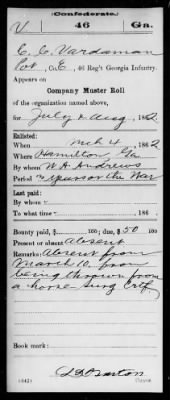 Confederate.
V 46 Ga.
C. C. Vardaman
Pvt, Co. E, 46 Reg't Georgia Infantry.
Appears on
Company Muster Roll
of the organization named above,
for July & Aug, 1862
Enlisted:
When Mch 4, 1862
Where Hamilton, Ga
By whom W. A. Andrews
Period 3 years or the War
Last paid:
By whom
To what time , 186 .
Bounty paid, $ 100; due, $ 50 100
Present or absent Absent
Remarks: Absent from
March 10. from
being thrown from
a horse - Surg Ctf.
Book mark:
(642)
Copyist.